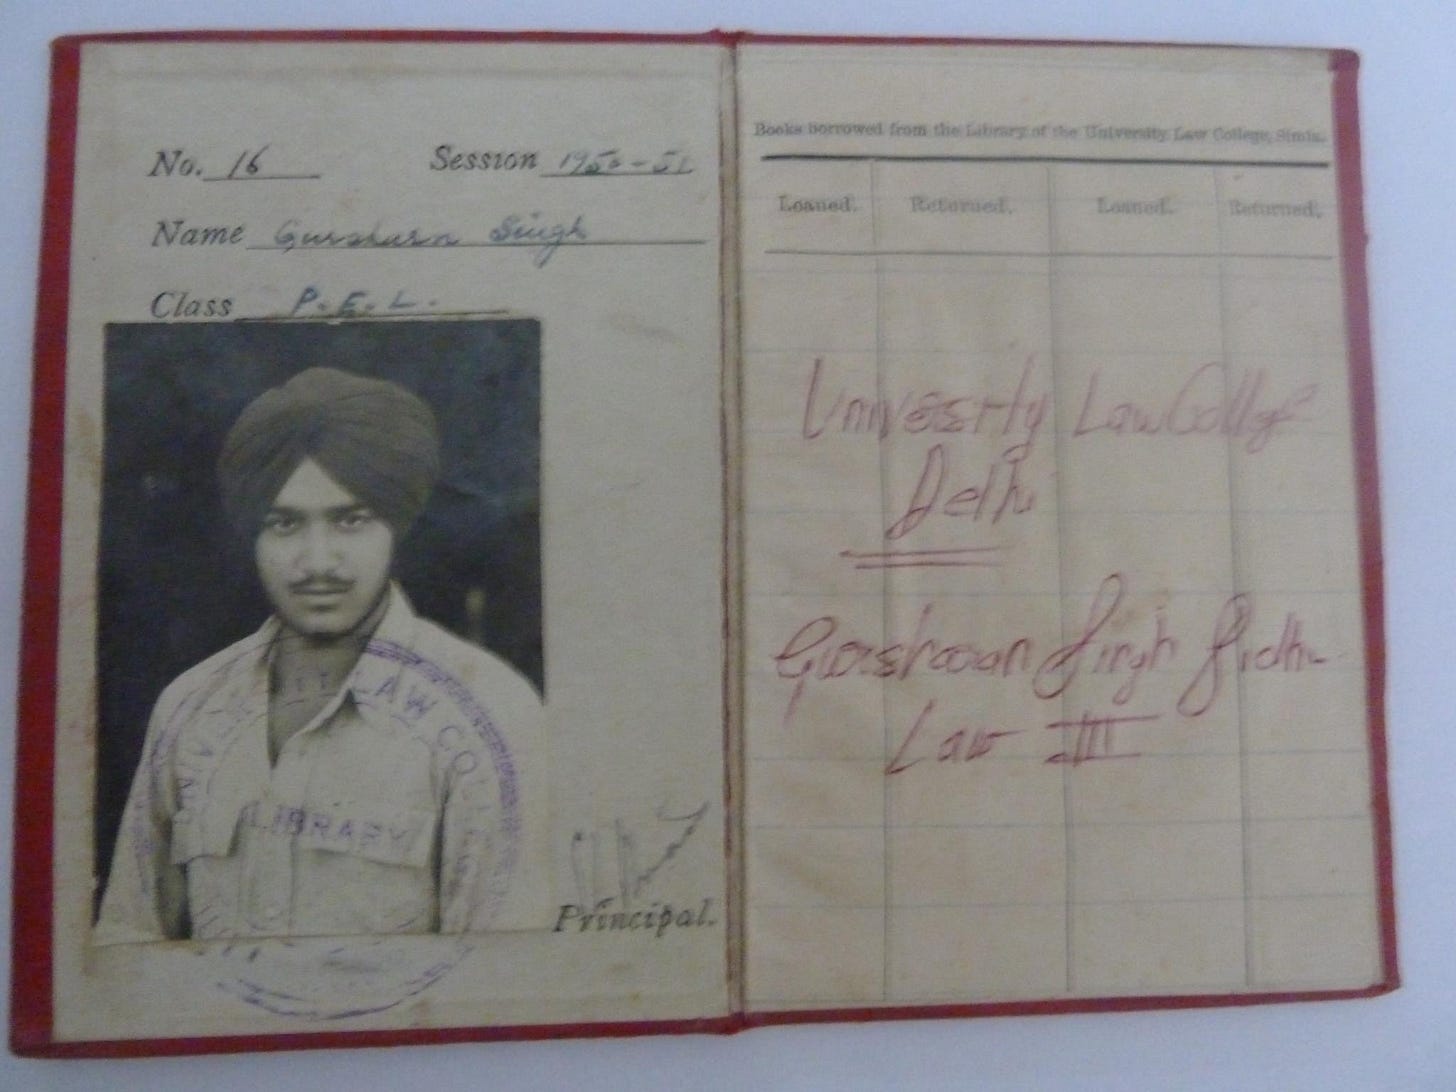 No. 16 Session 1950-51
Name Gursharn Singh
Class P.E.L.
UNIVERSITY LAW COLLEGE
LIBRARY
Principal.
Books borrowed from the Library of the University Law College, Simla.
Loaned. Returned. Loaned. Returned.
University Law College
Delhi
Gursharan Singh Sidhu
Law III